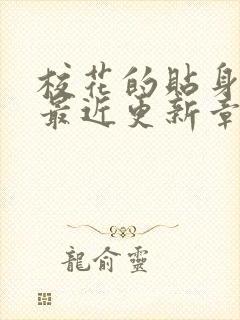 校花的貼身
最近更新章
龍俞靈